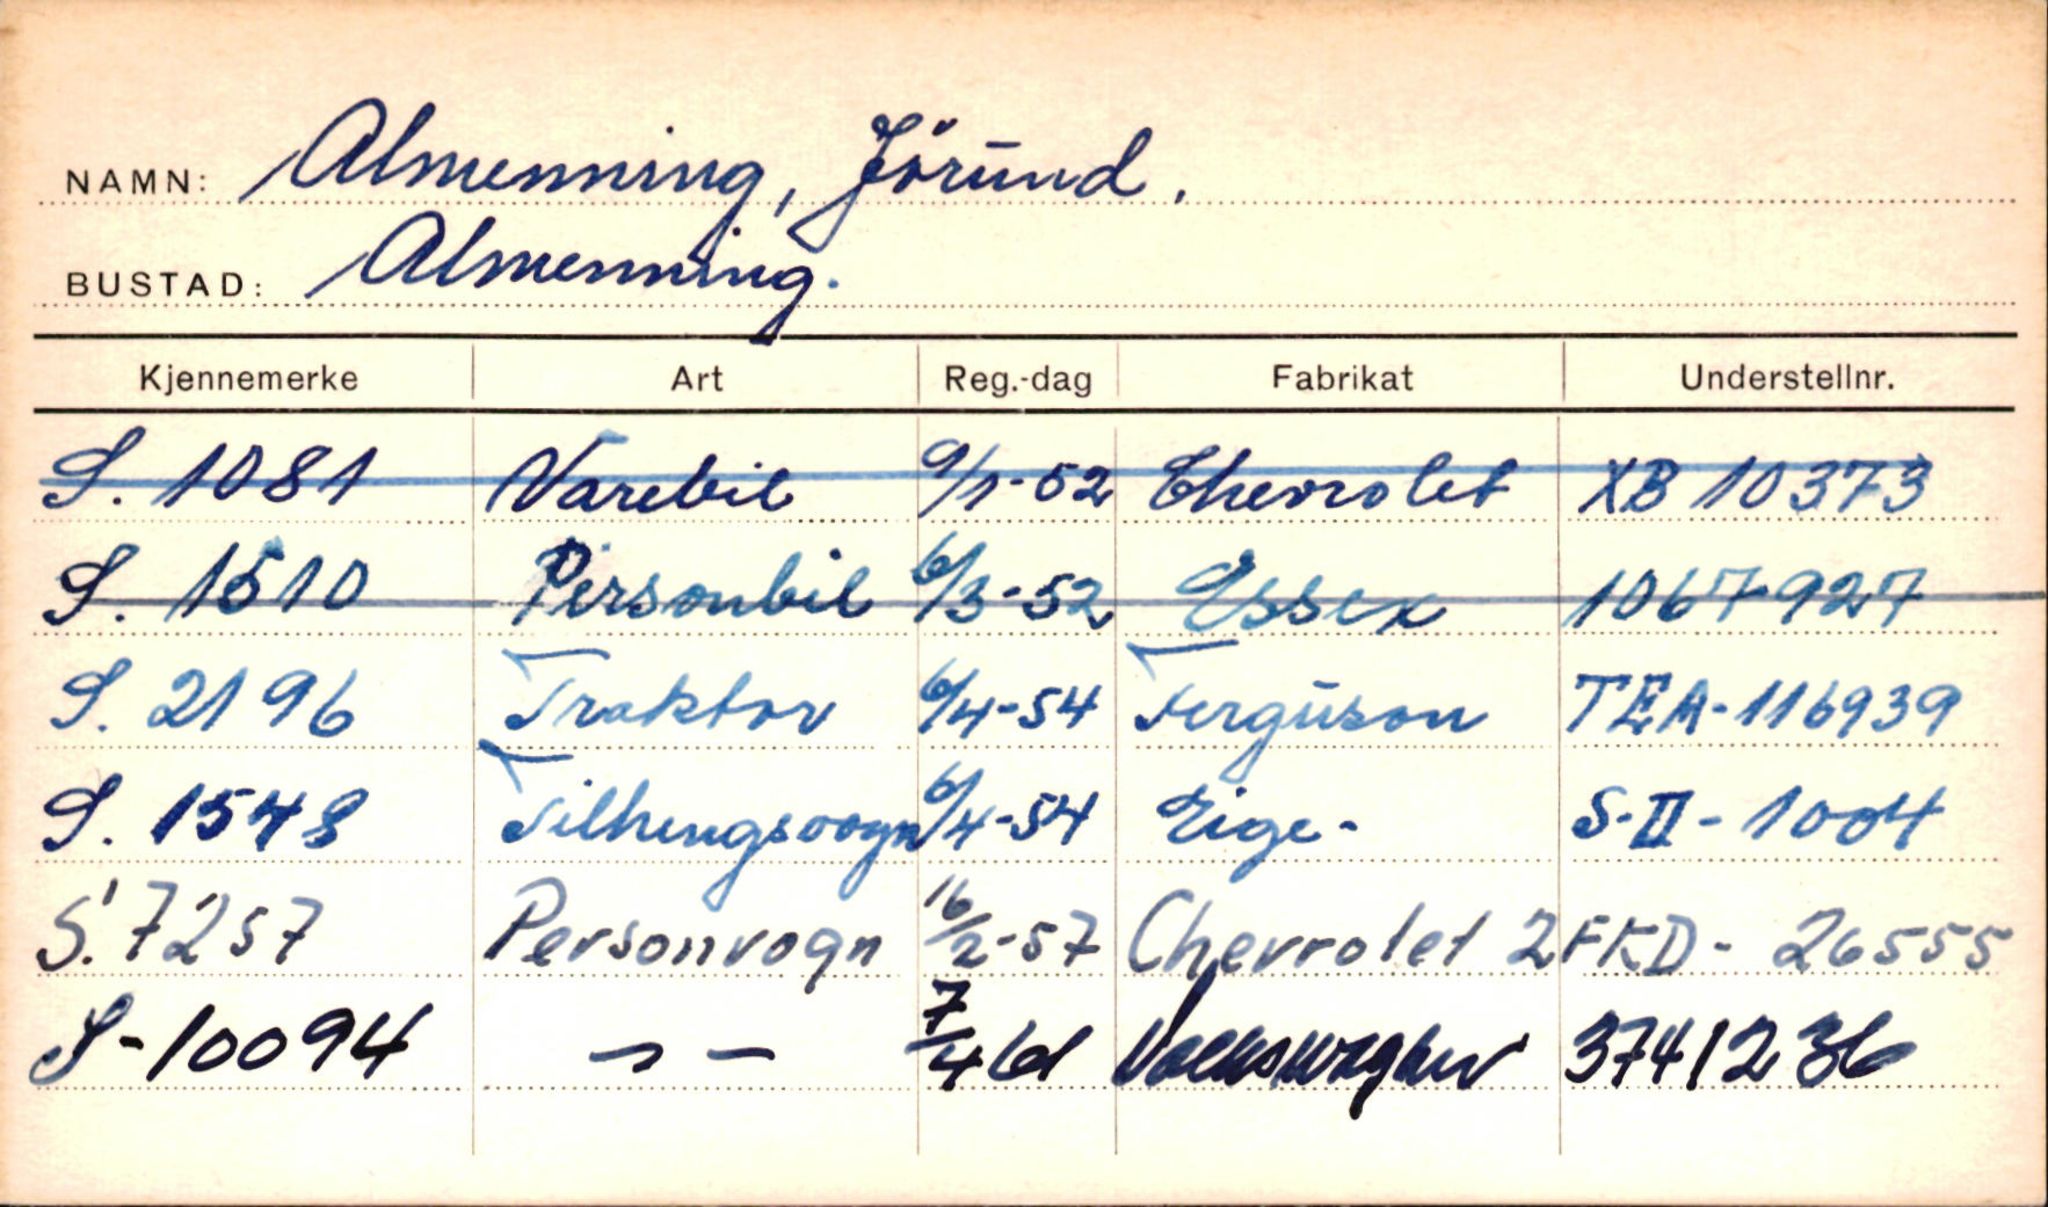 NAMN: Almenning, Jörund.
BUSTAD: Almenning.
Kjennemerke Art Reg.-dag Fabrikat Understellnr.
S. 1081 Varebil 9/1-52 Chevrolet XB 10373
S. 1510 Personbil 6/3-52 Essex 1067927
S. 2196 Traktor 6/4-54 Ferguson TEA-116939
S. 1548 Tilhengsvogn 6/4-54 Eige- S-II-1004
S. 7257 Personvogn 16/2-57 Chevrolet 2FKD-26555
S-10094 -- 7/4 61 Volkswagen 3741236